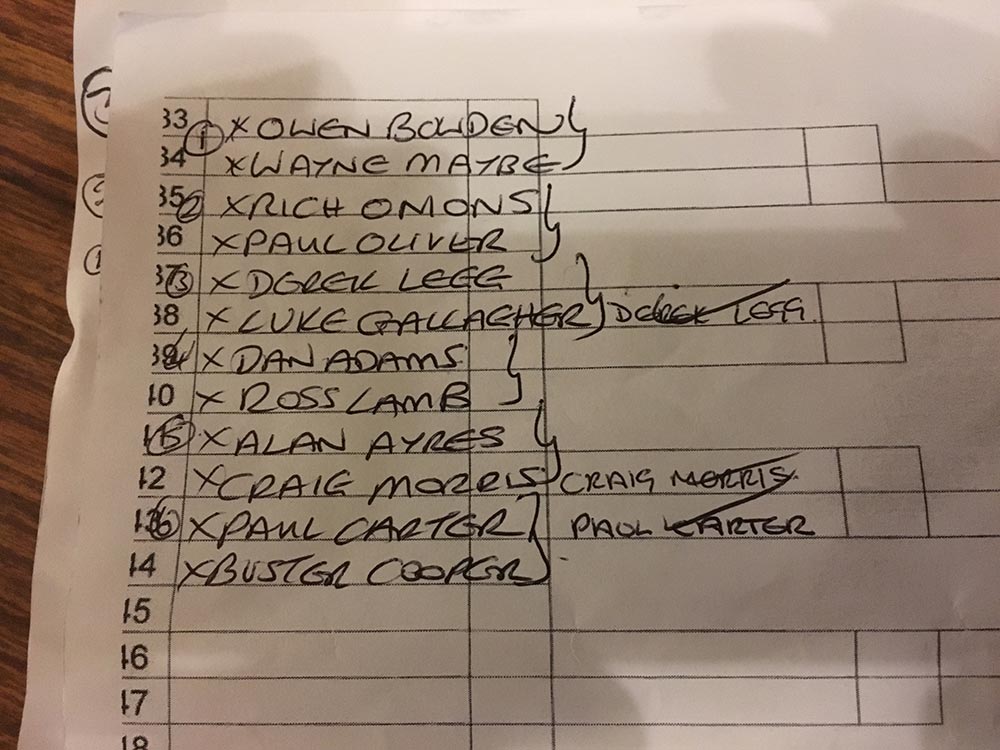 33 ① X OWEN BOWDEN
34 X WAYNE MAYBE
35 ② X RICH OMONS
36 X PAUL OLIVER
37 ③ X DEREK LEGG
38 X LUKE GALLAGHER DEREK LEGG
39 ④ X DAN ADAMS
10 X ROSS LAMB
⑤ X ALAN AYRES
12 X CRAIG MORRIS CRAIG MORRIS
13 ⑥ X PAUL CARTER PAUL CARTER
14 X BUSTER COOPER
15
16
17
18